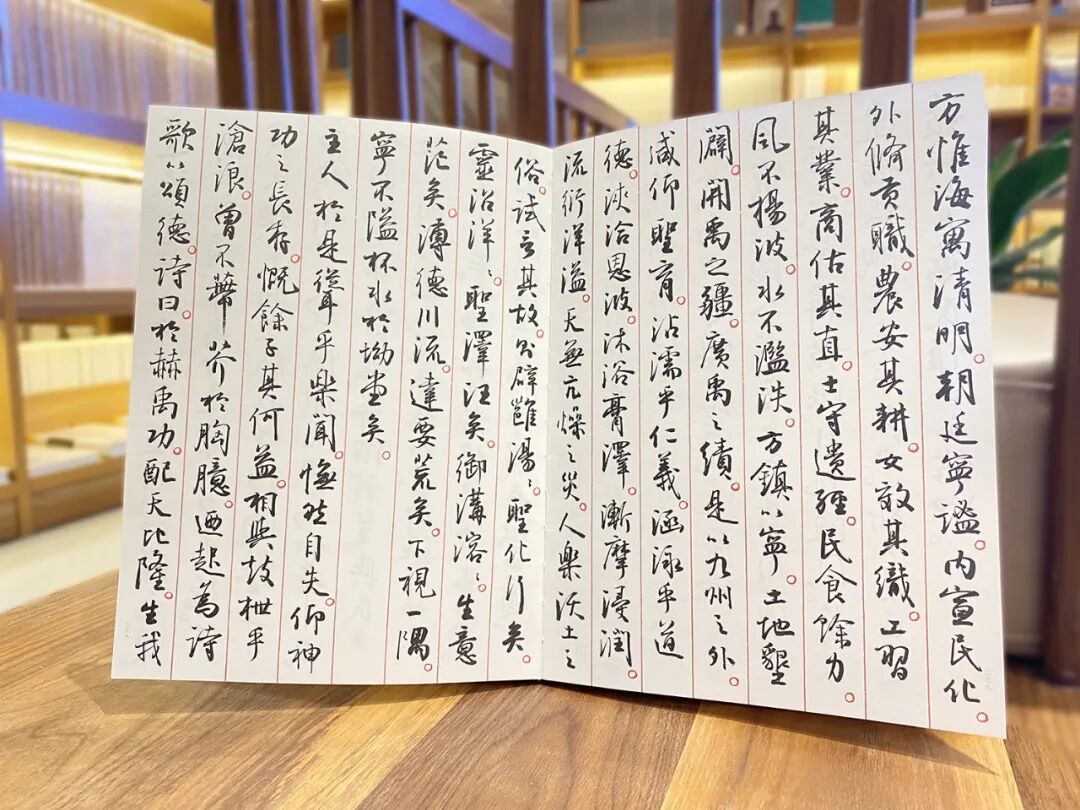 方惟海寓清明。朝廷寧謐。内宣民化。
外脩貢職。農安其耕。女效其織。工習
其業。商估其直。士守遺經。民食餘力。
風不揚波。水不濫泆。方鎮以寧。土地墾
闢。開禹之疆。廣禹之績。是以九州之外
咸仰聖育。沾濡乎仁義。涵泳乎道
德。浹洽恩波。沐浴膏澤。漸摩浸潤。
流衍洋溢。天無亢燥之災。人樂沃土之
俗。試言其故。我辟雝湯湯。聖化行矣。
靈沼洋洋。聖澤汪矣。御溝溶溶。生意
茫矣。漙德川流。達要荒矣。下視一隅。
寧不隘杯水於坳堂矣。
主人於是聳乎樂聞。憮然自失。仰神
功之長存。慨餘子其何益。相與鼓枻乎
滄浪。曾不蔕芥於胸臆。迺起為詩
歌以頌德。詩曰。於赫禹功。配天比隆。生我